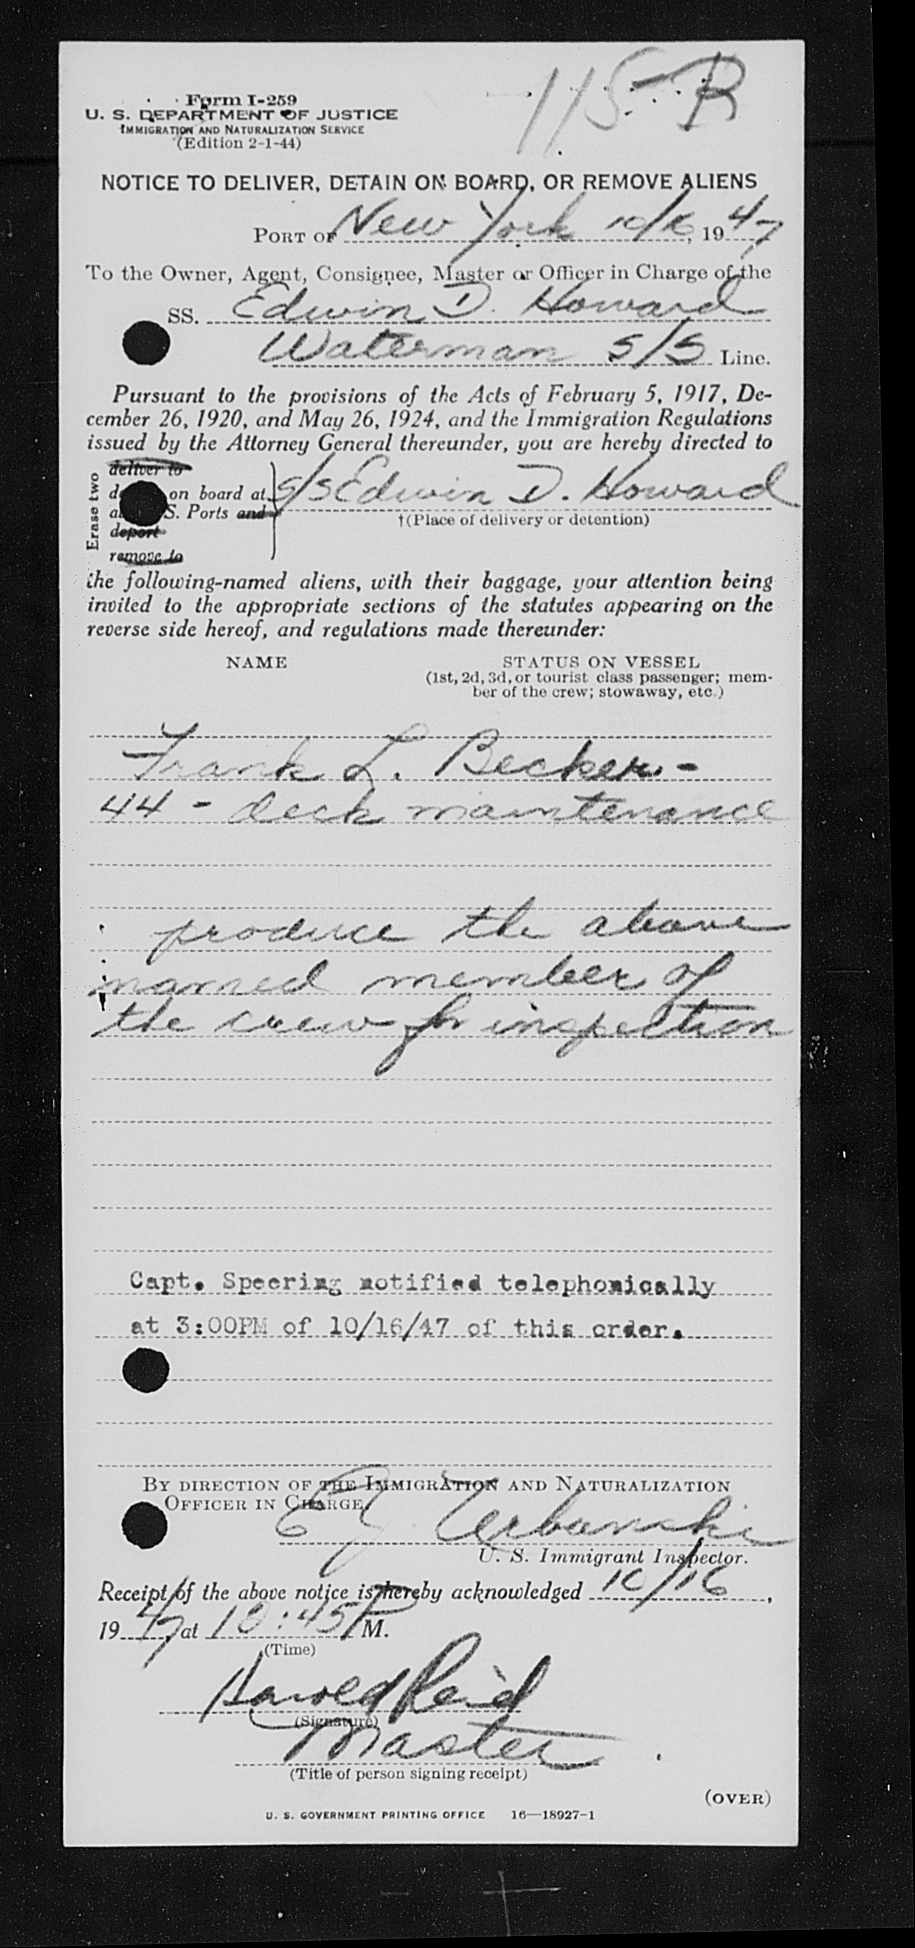 115-R
Form I-259
U. S. DEPARTMENT OF JUSTICE
IMMIGRATION AND NATURALIZATION SERVICE
(Edition 2-1-44)
NOTICE TO DELIVER, DETAIN ON BOARD, OR REMOVE ALIENS
PORT OF New York 10/16, 1947
To the Owner, Agent, Consignee, Master or Officer in Charge of the
SS. Edwin D. Howard
Waterman S/S Line.
Pursuant to the provisions of the Acts of February 5, 1917, De-
cember 26, 1920, and May 26, 1924, and the Immigration Regulations
issued by the Attorney General thereunder, you are hereby directed to
Erase two
deliver to
on board at S/S Edwin D. Howard
S. Ports and
†(Place of delivery or detention)
deport
remove to
the following-named aliens, with their baggage, your attention being
invited to the appropriate sections of the statutes appearing on the
reverse side hereof, and regulations made thereunder:
NAME STATUS ON VESSEL
(1st, 2d, 3d, or tourist class passenger; mem-
ber of the crew; stowaway, etc.)
Frank L. Becker -
44 - deck maintenance
produce the above
named member of
the crew for inspection
Capt. Speering notified telephonically
at 3:00PM of 10/16/47 of this order.
BY DIRECTION OF THE IMMIGRATION AND NATURALIZATION
OFFICER IN CHARGE,
E J. Urbanski
U. S. Immigrant Inspector.
Receipt of the above notice is hereby acknowledged 10/16,
1947, at 10:45 P M.
(Time)
Harold Reid
(Signature)
Master
(Title of person signing receipt)
(OVER)
U. S. GOVERNMENT PRINTING OFFICE 16—18927-1